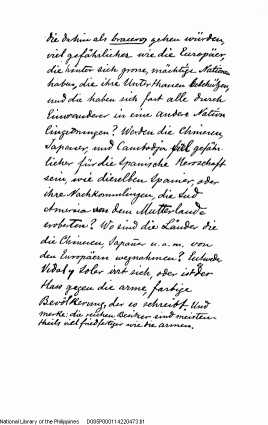 die dahin als braceros gehen würden,
viel gefährlicher wie die Europäer,
die hinter sich grosse, mächtige Nationen
haben, die ihre Unterthanen beschützen,
und die haben sich fast alle durch
Einwanderer in eine andere Nation
eingedrungen? Werden die Chinesen,
Japaner, und Cambodja viel gefähr-
licher für die Spanische Herrschaft
sein, wie dieselben Spanier, oder
ihre Nachkömmlingen, die Süd
America von dem Mutterlande
eroberten? Wo sind die Länder die
die Chinesen, Japaner u.a.m. von
den Europäern wegnahmen? Entweder
Vidal y Soler irrt sich, oder ist der
Hass gegen die arme, farbige
Bevölkerung, der es schreibt. Und
merke: die reichen Besitzer sind meisten-
theils viel friedfertiger wie die armen.
National Library of the Philippines D005P00011422047381